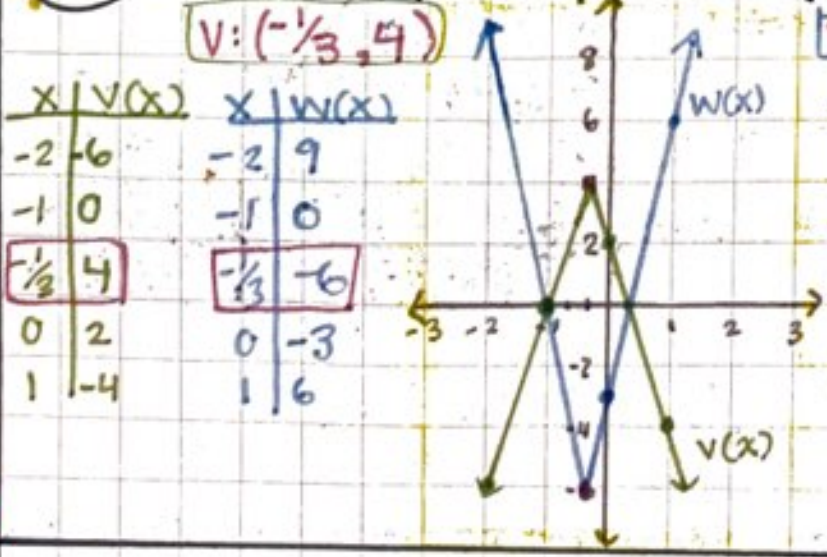 V: (-1/3, 4)
X V(X)
-2 -6
-1 0
-1/3 4
0 2
1 -4
X W(X)
-2 9
-1 0
-1/3 -6
0 -3
1 6
8
6
2
-3 -2 -1 1 2 3
-2
-4
-6
W(X)
V(X)